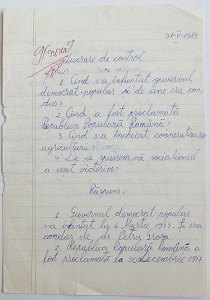 31-V-1989
Lucrare de control
1. Cînd va înfiintat guvernul
democrat-popular și de cine era con
dus?
2. Cînd a fost proclamată
Republica Populară Română?
3. Cînd va încheiat cooperativizarea
agriculturii
4. De ce spunem că socialismul
a ieșit victorios?
Răspuns:
1. Guvernul democrat popular
va înfiintat la 6 Martie 1945. El era
condus de dr. Petru Groza
2. Republica Populară Română a
fost proclamată la 30 Decembrie 1947.